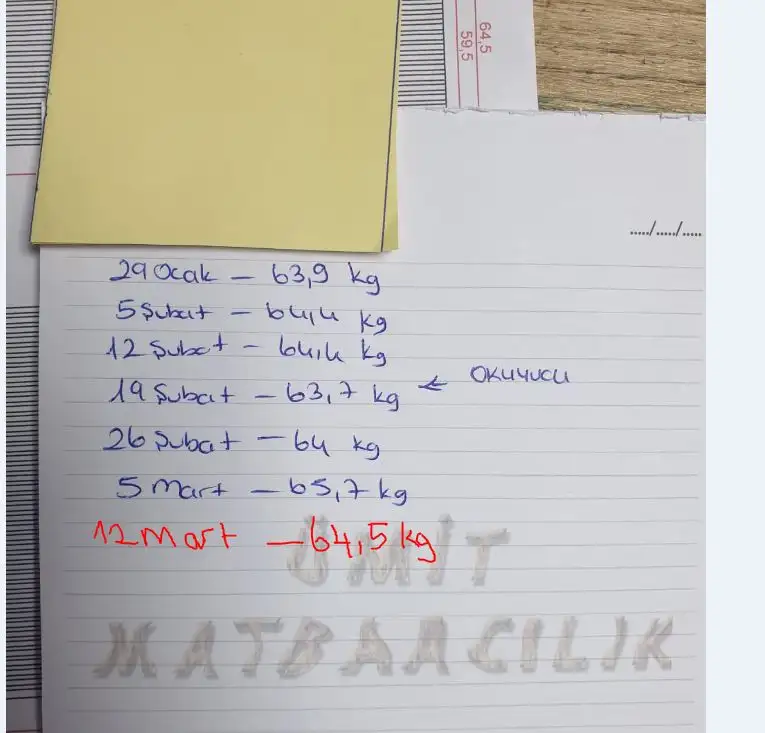 64,5
59,5
...../...../.....
29 Ocak - 63,9 kg
5 Şubat - 64,4 kg
12 Şubat - 64,4 kg
19 Şubat - 63,7 kg ← OKUYUCU
26 Şubat - 64 kg
5 Mart - 65,7 kg
12 Mart - 64,5 kg
ÜMİT
MATBAACILIK